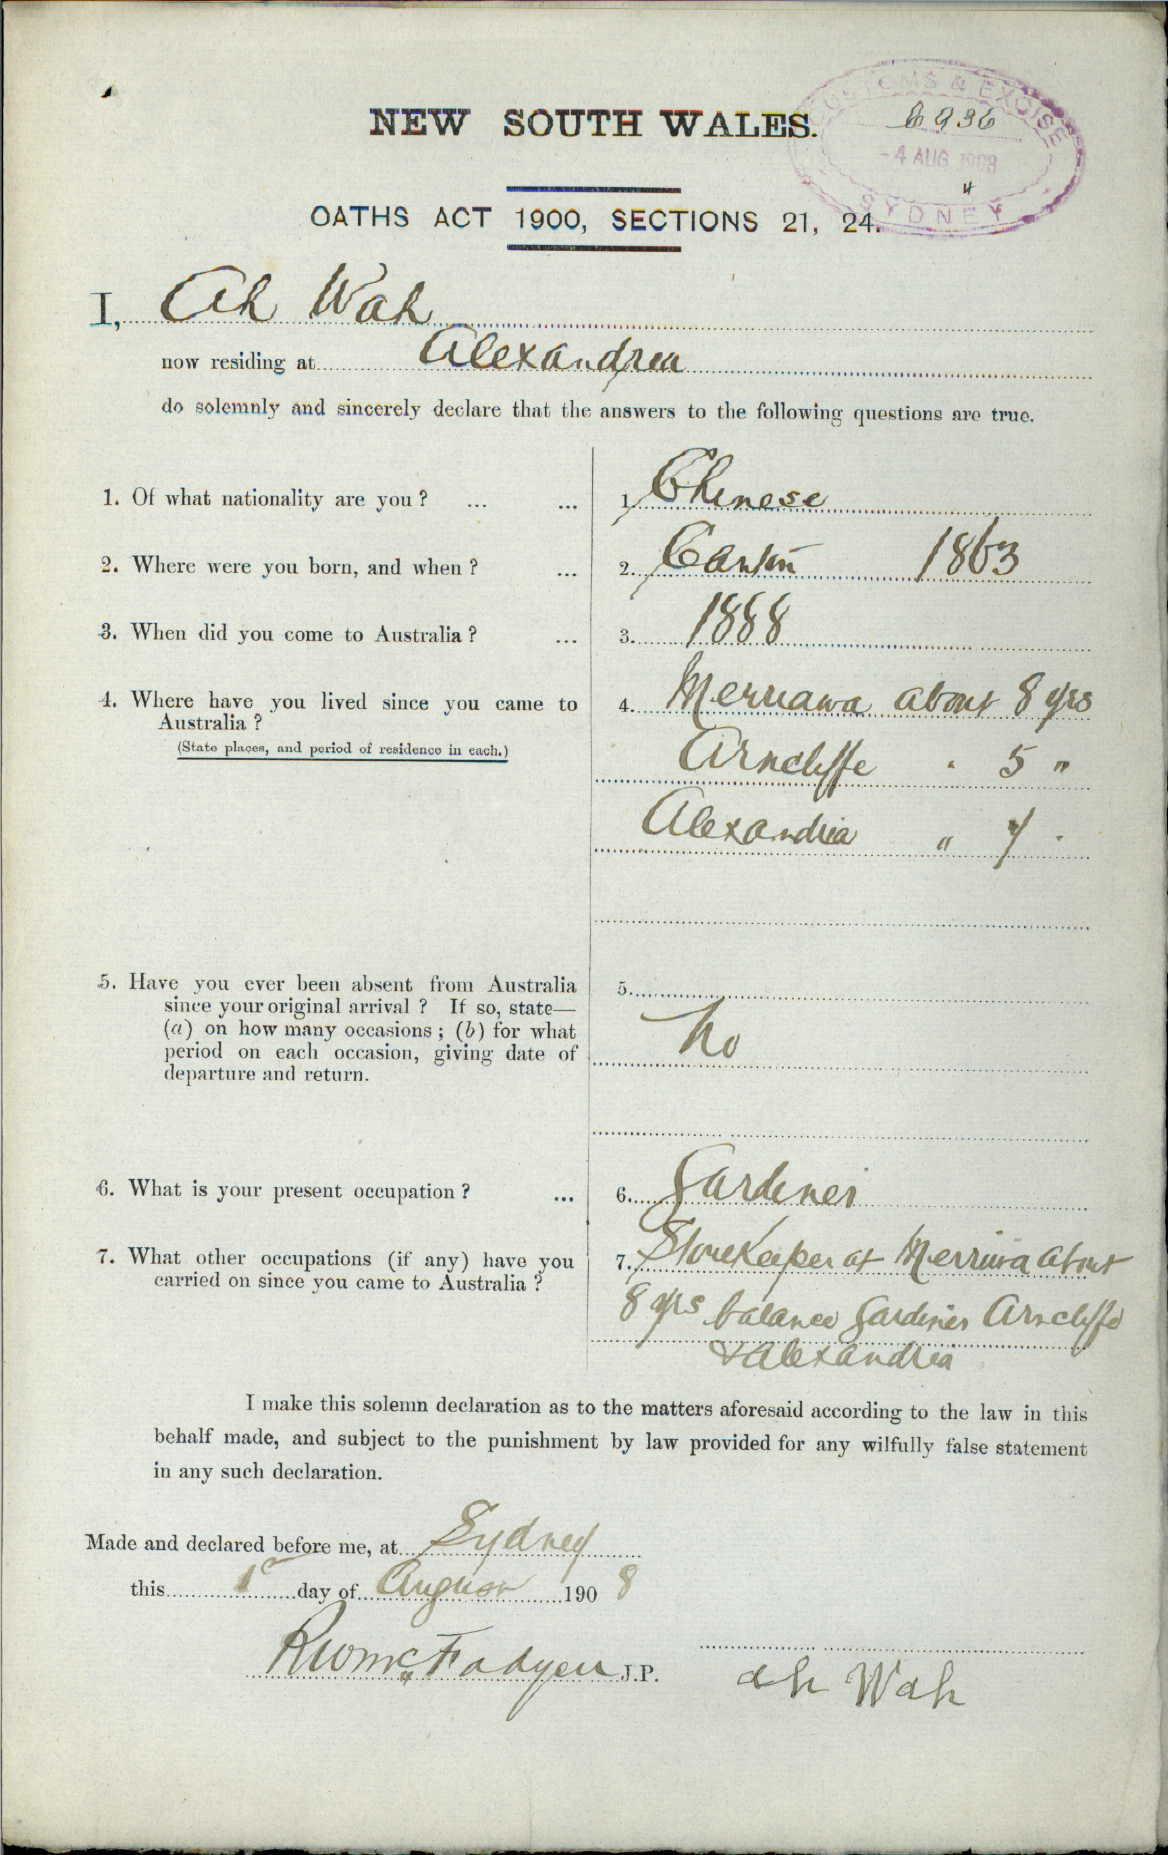 CUSTOMS & EXCISE
6936
-4 AUG 1908
SYDNEY
NEW SOUTH WALES.
OATHS ACT 1900, SECTIONS 21, 24.
I, Ah Wah
now residing at Alexandria
do solemnly and sincerely declare that the answers to the following questions are true.
1. Of what nationality are you? ... ... 1. Chinese
2. Where were you born, and when? ... 2. Canton 1863
3. When did you come to Australia? ... 3. 1888
4. Where have you lived since you came to 4. Merriawa about 8 yrs
Australia?
(State places, and period of residence in each.) Arncliffe " 5 "
Alexandria " 7 "
5. Have you ever been absent from Australia 5.
since your original arrival? If so, state—
(a) on how many occasions; (b) for what No
period on each occasion, giving date of
departure and return.
6. What is your present occupation? ... 6. Gardener
7. What other occupations (if any) have you 7. Storekeeper at Merriwa about
carried on since you came to Australia? 8 yrs balance Gardener Arncliffe
& Alexandria
I make this solemn declaration as to the matters aforesaid according to the law in this
behalf made, and subject to the punishment by law provided for any wilfully false statement
in any such declaration.
Made and declared before me, at Sydney
this 1st day of August 1908
RWMcFadyen J.P.
ah Wah